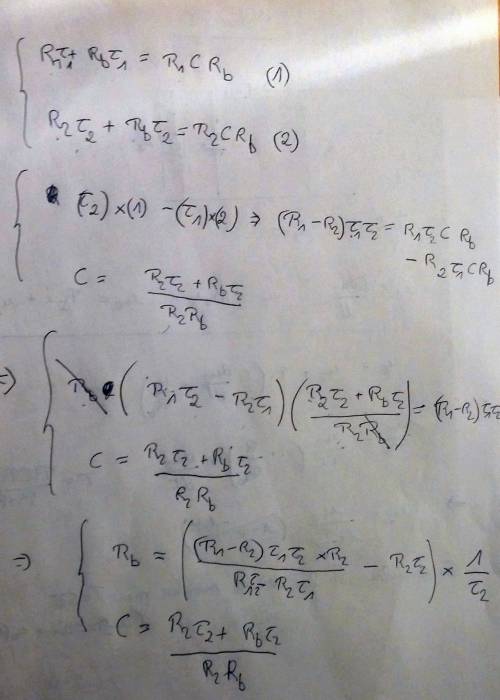 R₁τ₁ + R_bτ₁ = R₁ C R_b (1)
R₂τ₂ + R_bτ₂ = R₂CR_b (2)
(τ₂)×(1) − (τ₁)×(2) ⇒ (R₁ − R₂)τ₁τ₂ = R₁τ₂C R_b
− R₂τ₁CR_b
C = (R₂τ₂ + R_bτ₂)/(R₂R_b)
⇒ R_b (R₁τ₂ − R₂τ₁) ((R₂τ₂ + R_bτ₂)/(R₂R_b)) = (R₁−R₂)τ₁τ₂
C = (R₂τ₂ + R_bτ₂)/(R₂R_b)
⇒ R_b = (((R₁−R₂)τ₁τ₂ × R₂)/(R₁τ₂ − R₂τ₁) − R₂τ₂) × 1/τ₂
C = (R₂τ₂ + R_bτ₂)/(R₂R_b)